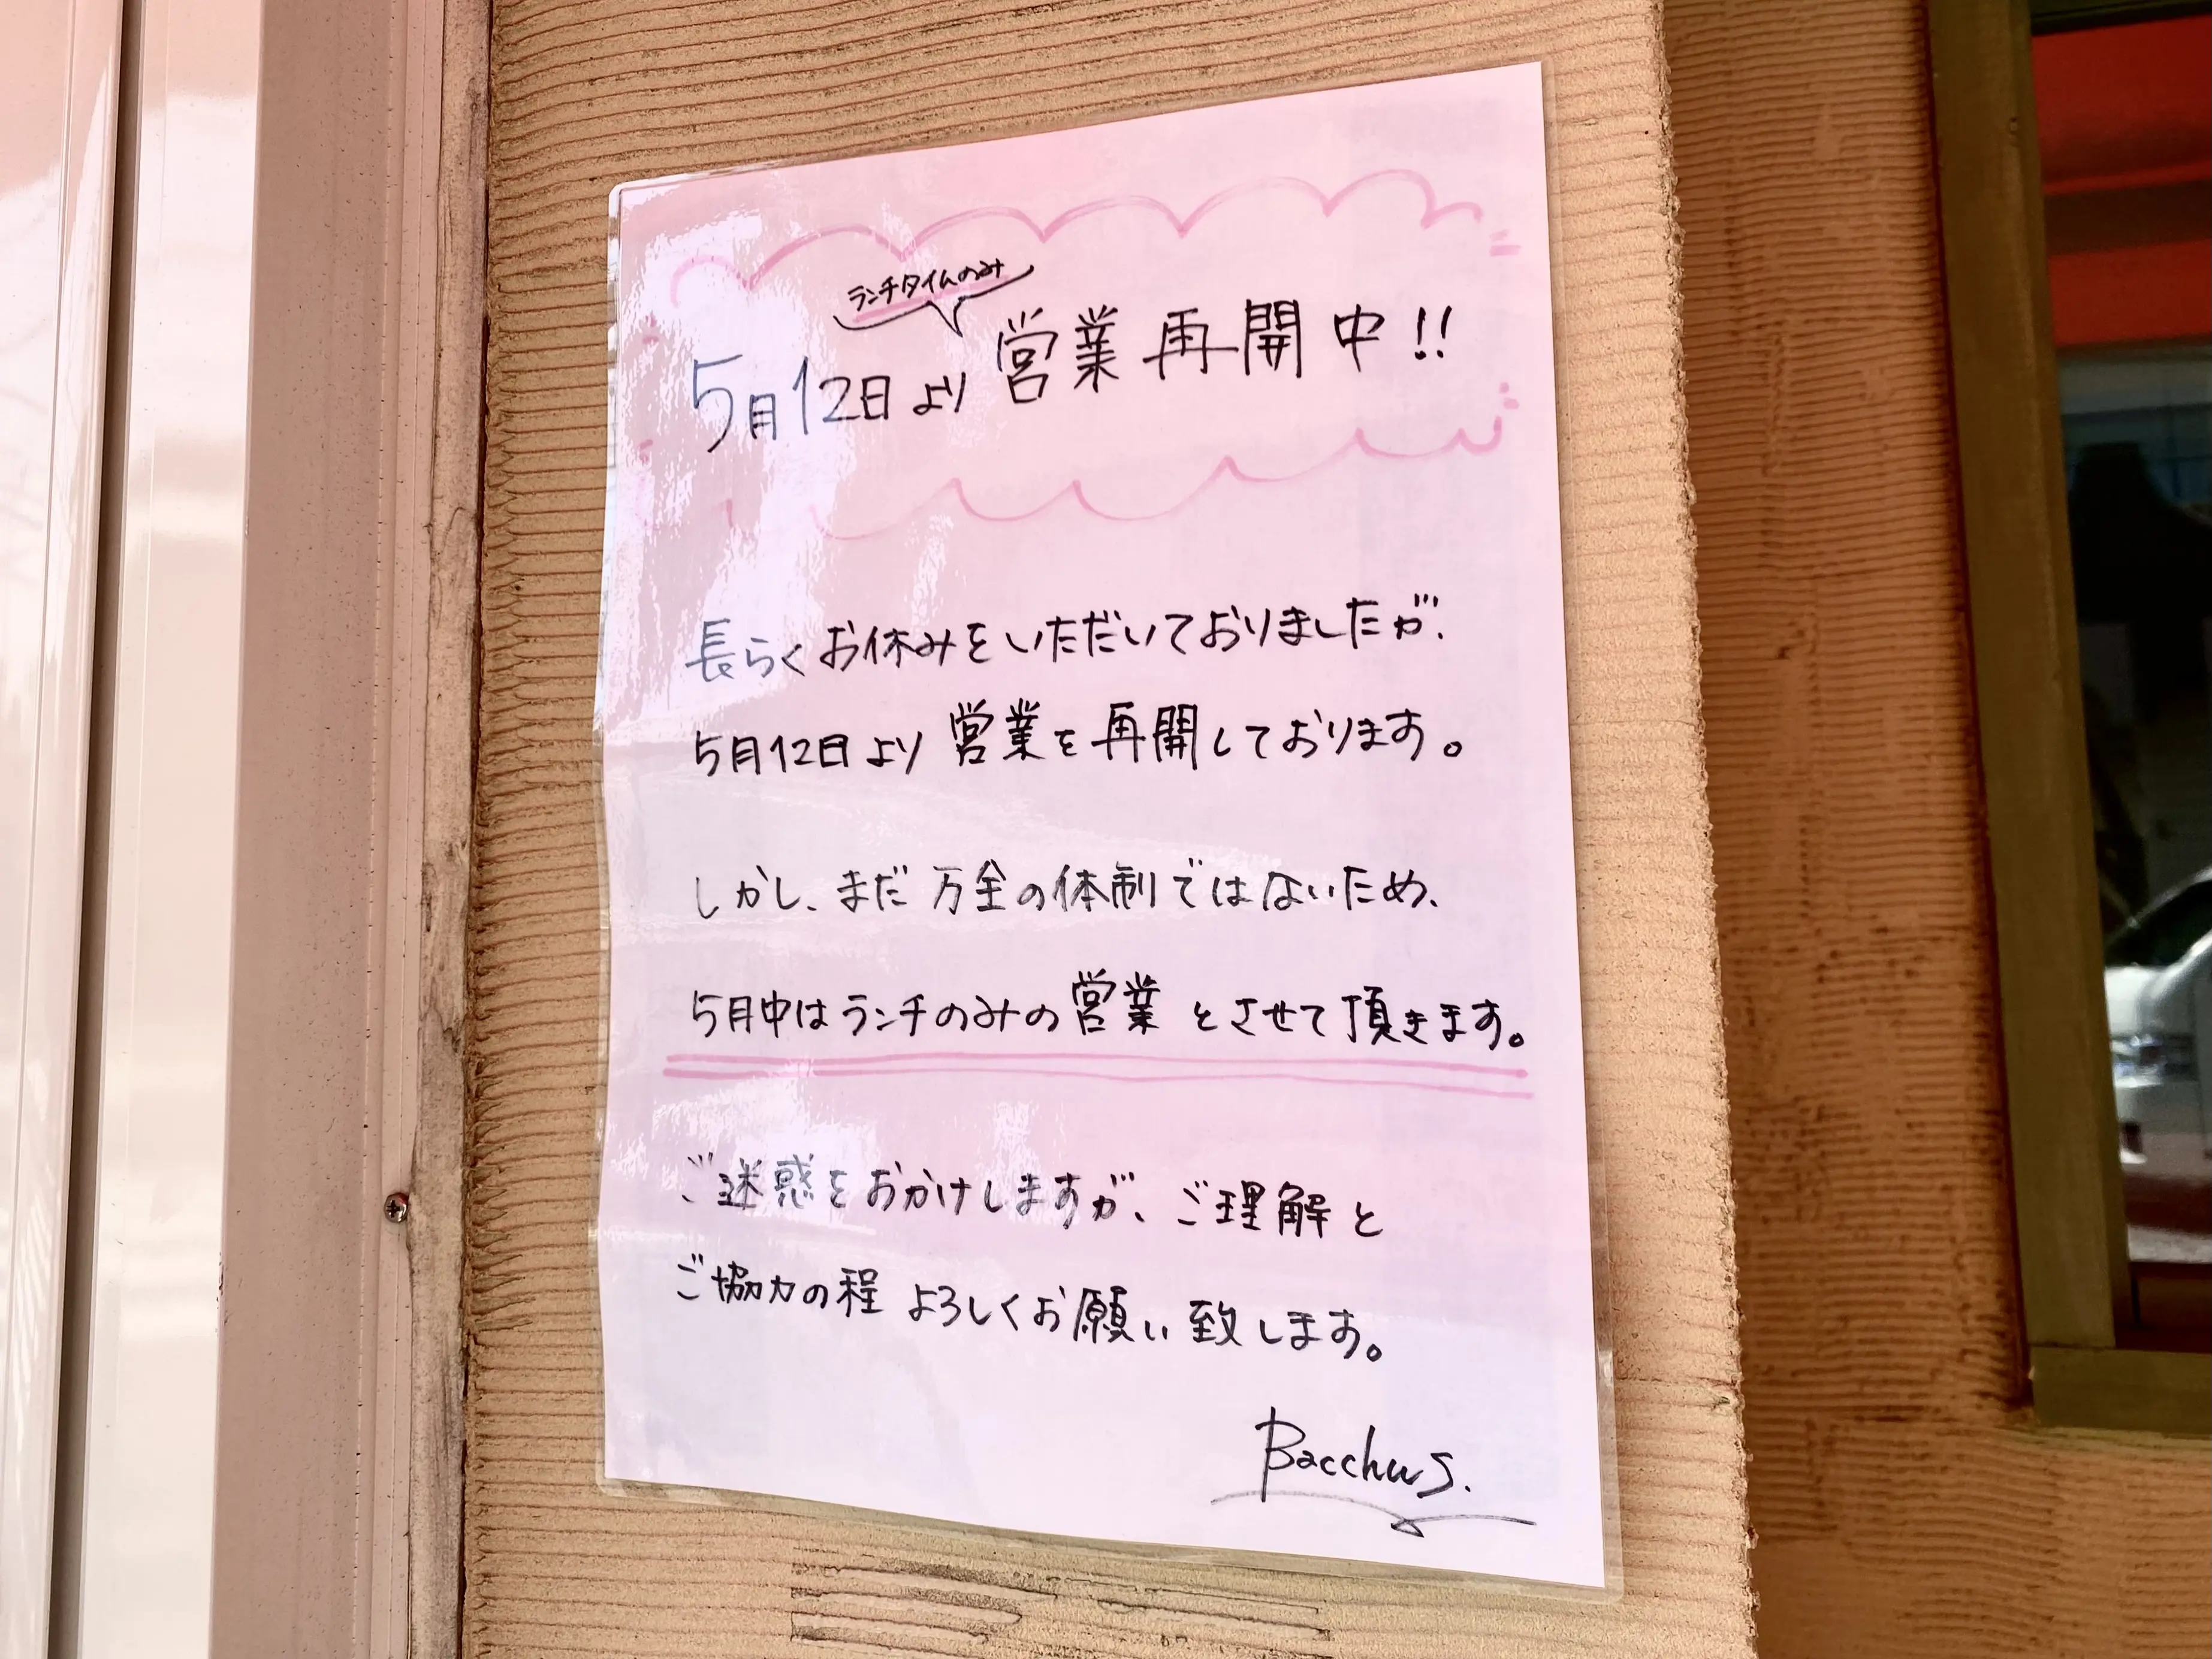 ランチタイムのみ
5月12日より営業再開中!!
長らくお休みをいただいておりましたが、
5月12日より営業を再開しております。
しかし、まだ万全の体制ではないため、
5月中はランチのみの営業とさせて頂きます。
ご迷惑をおかけしますが、ご理解と
ご協力の程よろしくお願い致します。
Bacchus.